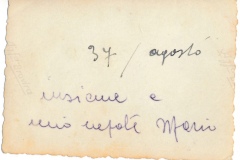 37 / agosto
insieme a
mio nepote Mario